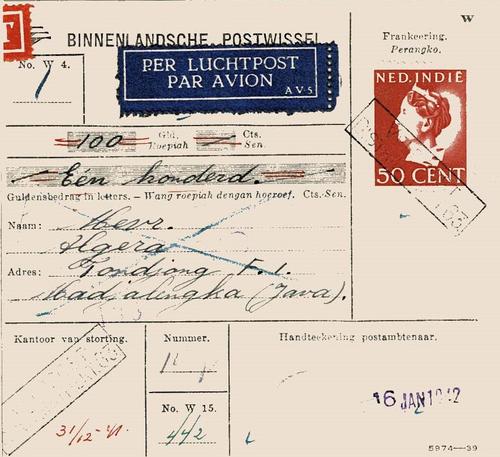 W
BINNENLANDSCHE POSTWISSEL
Frankeering.
Perangko.
No. W 4.
PER LUCHTPOST
PAR AVION
AV-5
NED. INDIË
50 CENT
100 Gld. Roepiah Cts. Sen.
Eén honderd.
Guldensbedrag in letters. – Wang roepiah dengan hoeroef. Cts.-Sen.
Naam: Mevr.
Algera
Adres: Tondjong F. 1.
Madjalengka (Java).
Kantoor van storting.
Nummer.
Handteekening postambtenaar.
No. W 15.
31/12-41.
442
16 JAN 1942
5974—39